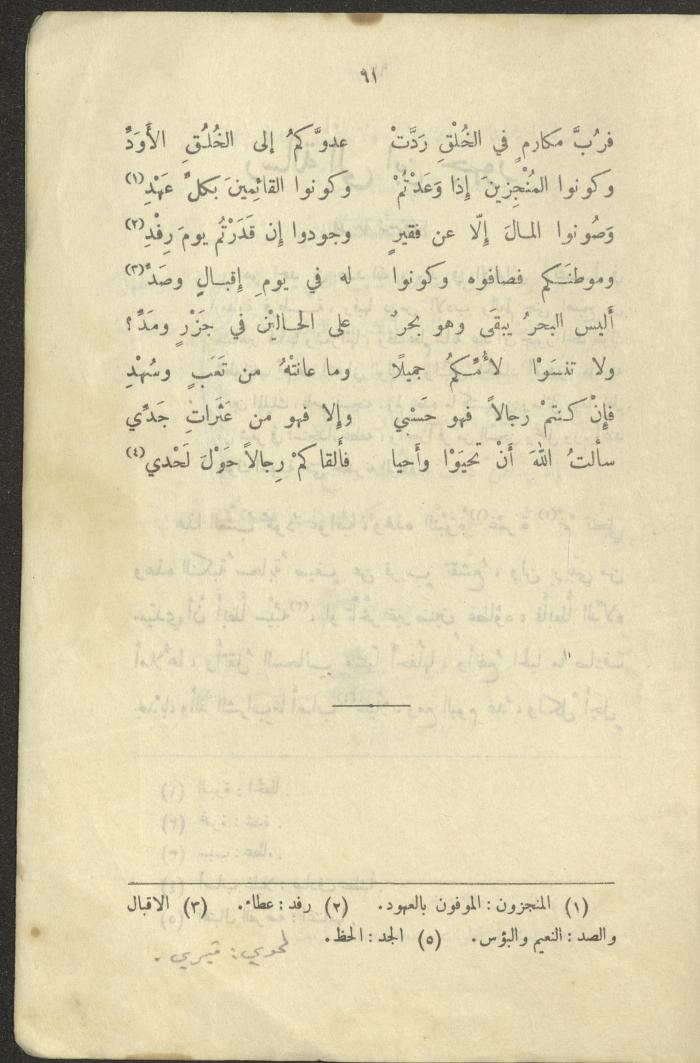 ٩١
فرُبَّ مكارمٍ في الخُلْقِ رَدَّتْ عدوَّكمُ إلى الخُلُقِ الأَوَدِّ
وكونوا المُنْجِزينَ إِذا وَعَدْتُمْ وكونوا القائِمِينَ بكلِّ عَهْدِ (١)
وَصُونوا المالَ إِلّا عن فقيرٍ وجودوا إن قَدَرْتُم يومَ رِفْدِ (٢)
وموطنَكم فصافوه وكونوا له في يومِ إِقبالٍ وصَدِّ (٣)
أَليس البحرُ يبقَى وهو بحرٌ على الحالَيْن في جَزْرٍ ومَدِّ؟
ولا تنسَوْا لأُمِّكمُ جميلًا وما عانتْهُ من تَعَبٍ وسُهْدِ
فإِنْ كنتمْ رجالاً فهو حَسْبي وإلا فهو من عَثَراتِ جَدِّي
سألتُ اللهَ أَنْ تحيَوْا وأَحيا فأَلقاكمْ رِجالاً حَوْلَ لَحْدي (٤)
(١) المنجزون : الموفون بالعهود. (٢) رفد : عطاء. (٣) الاقبال
والصد : النعيم والبؤس. (٥) الجد : الحظ.
لحدي : قبري .